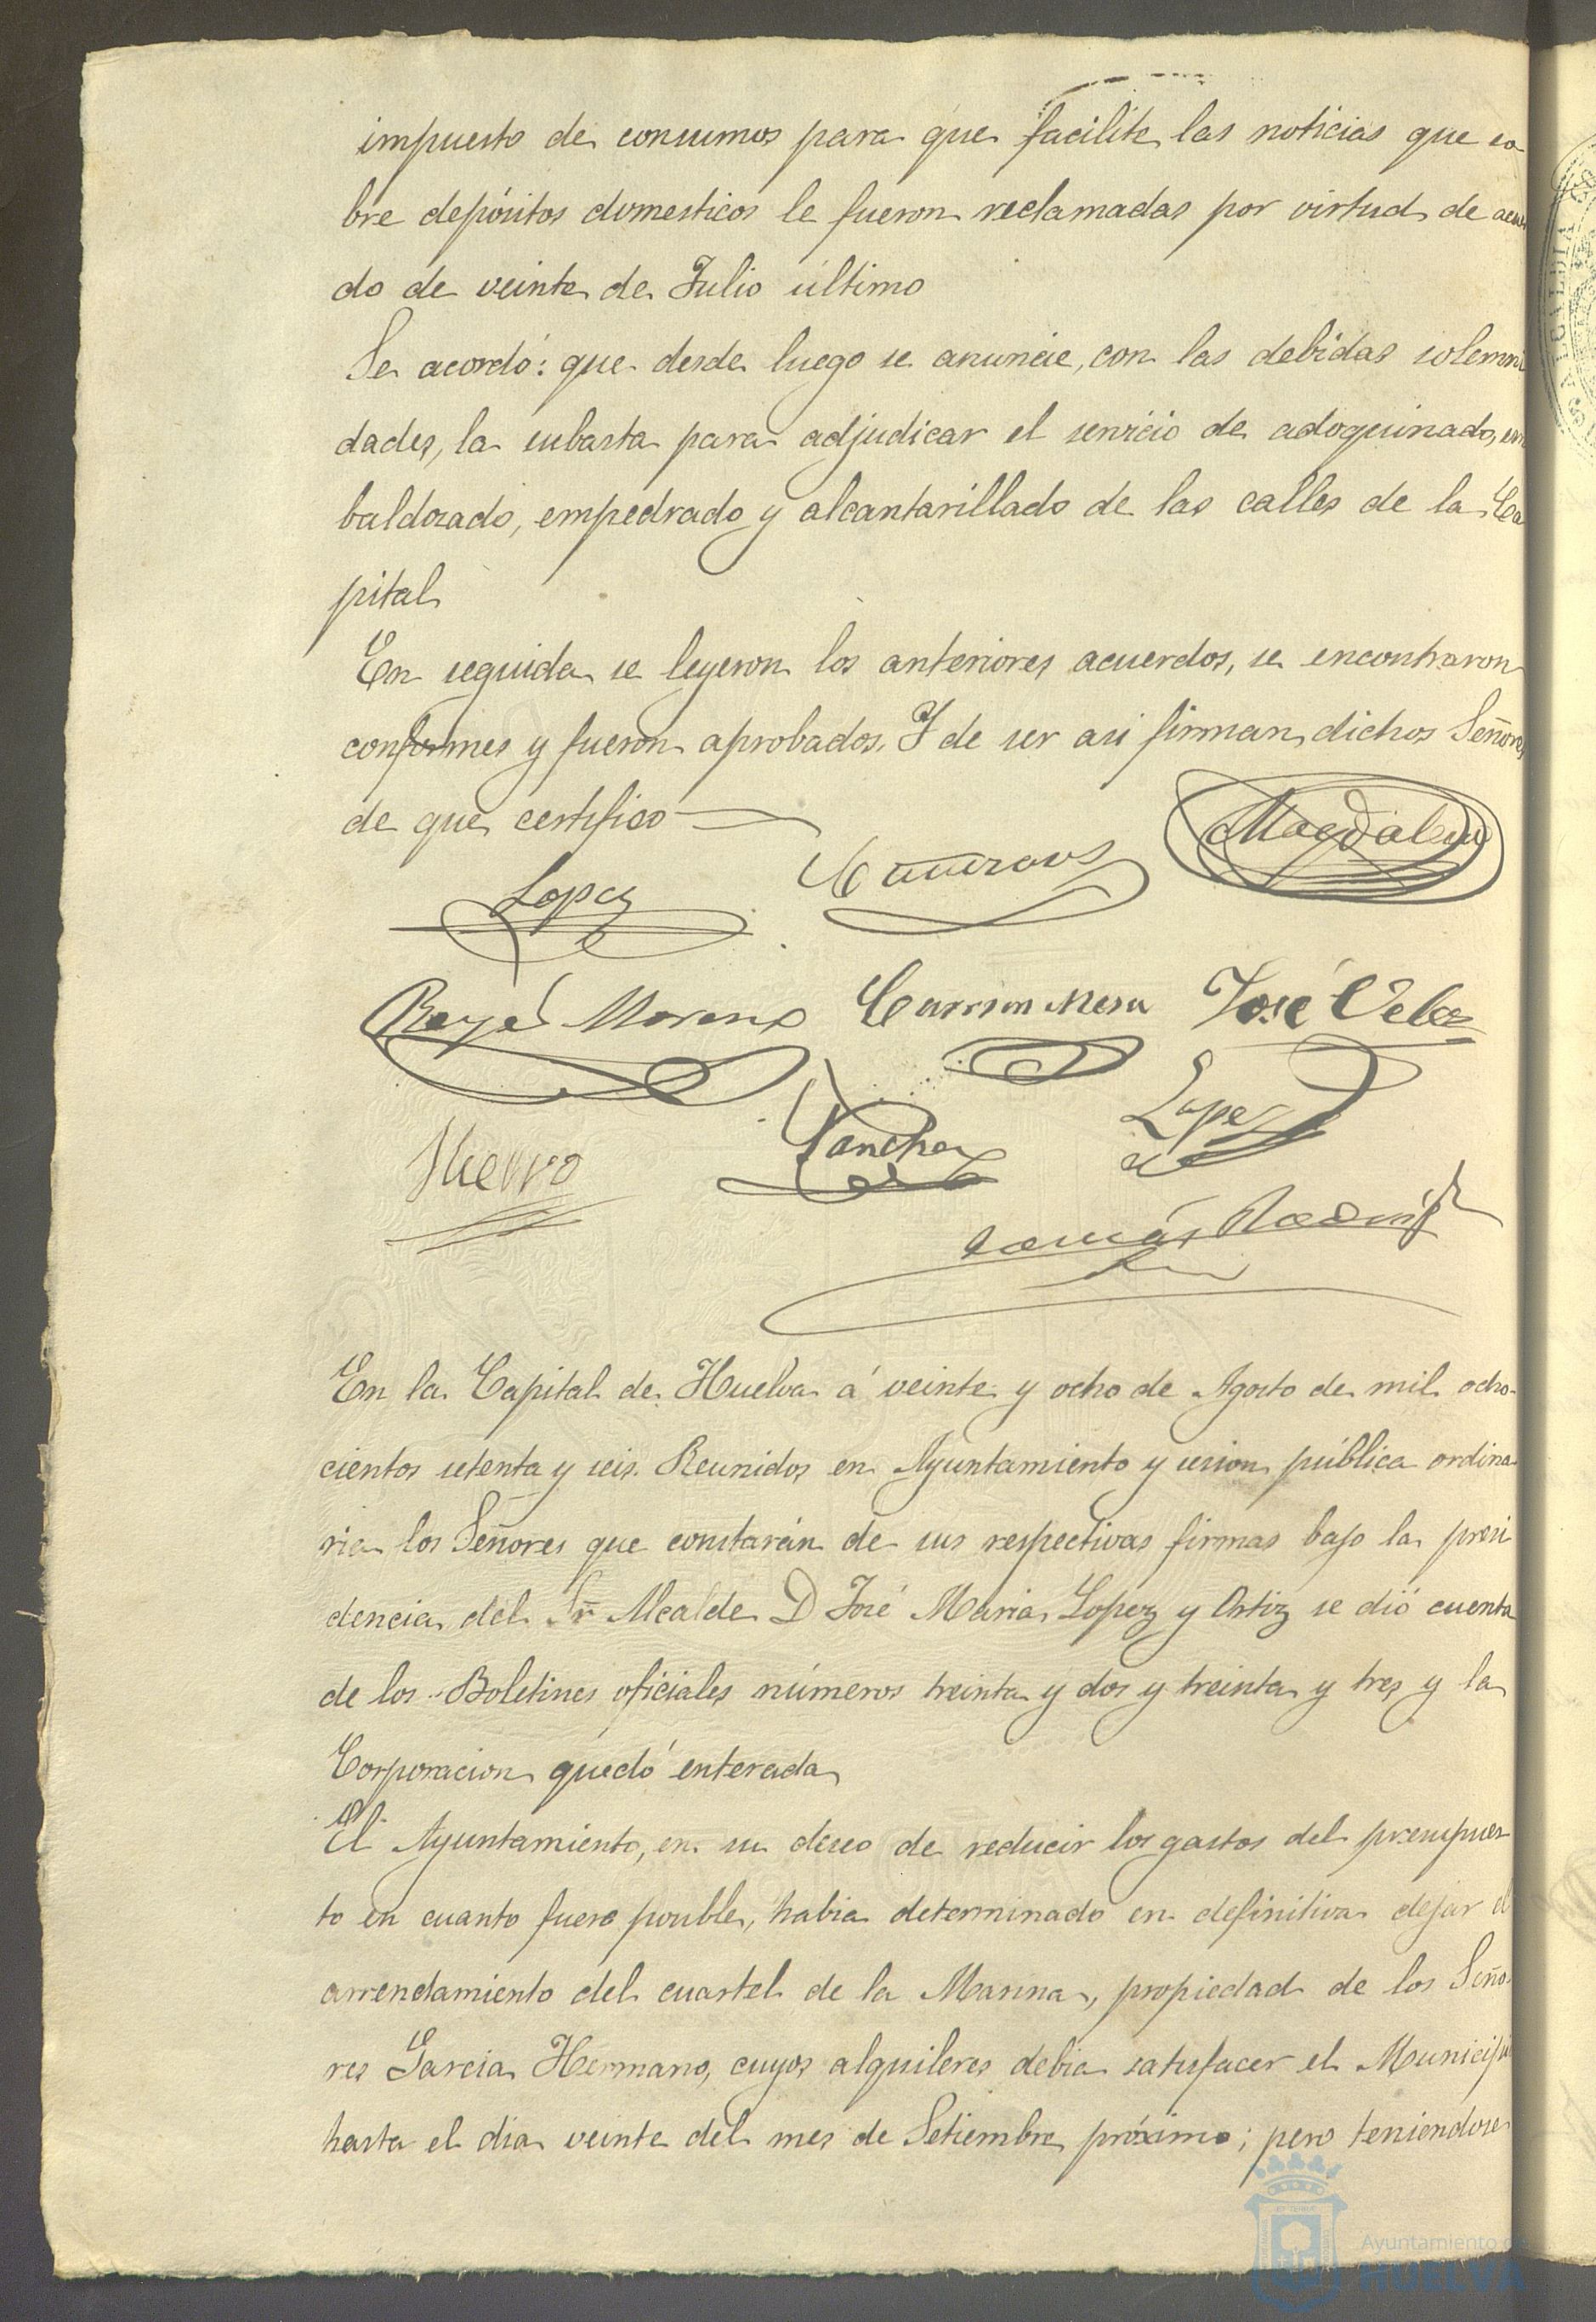 impuesto de consumos para que facilite las noticias que so
bre depósitos domesticos le fueron reclamadas por virtud de acuer
do de veinte de Julio último
Se acordó: que desde luego se anuncie, con las debidas solemni
dades, la subasta para adjudicar el servicio de adoquinado, em
baldozado, empedrado y alcantarillado de las calles de la Ca
pital
En seguida se leyeron los anteriores acuerdos, se encontraron
conformes y fueron aprobados. Y de ser asi firman dichos Señores
de que certifico
Magdalena
Lopez
Moreno Carrion Mesa José Velez
Lopez
Sanchez
Hierro
Tomás
En la Capital de Huelva á veinte y ocho de Agosto de mil ocho-
cientos setenta y seis. Reunidos en Ayuntamiento y sesion pública ordina-
ria los Señores que constarán de sus respectivas firmas bajo la presi
dencia del Sr. Alcalde D José Maria Lopez y Ortiz se dió cuenta
de los Boletines oficiales números treinta y dos y treinta y tres y la
Corporacion quedó enterada
El Ayuntamiento, en su deseo de reducir los gastos del presupues-
to en cuanto fuere posible, habia determinado en definitiva dejar el
arrendamiento del cuartel de la Marina, propiedad de los Seño-
res Garcia Hermano, cuyos alquileres debia satisfacer el Municipio
hasta el dia veinte del mes de Setiembre próximo; pero teniendose
ALCALDIA
Ayuntamiento de
HUELVA